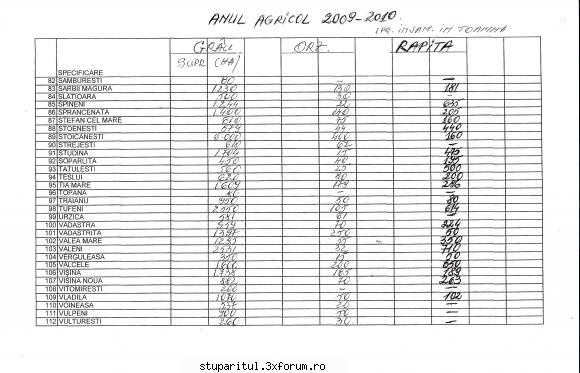 ANUL AGRICOL 2009-2010.
INSAM. IN TOAMNA
GRÂU ORZ. RAPITA
SUPR (HA)
SPECIFICARE
82 SAMBURESTI 80 — —
83 SARBII MAGURA 1230 130 181
84 SLATIOARA 500 30 —
85 SPINENI 1.244 22 635
86 SPRANCENATA 1.400 140 205
87 STEFAN CEL MARE 810 75 160
88 STOENESTI 574 44 440
89 STOICANESTI 6.000 400 160
90 STREJESTI 610 62 —
91 STUDINA 1.704 15 475
92 SOPARLITA 450 40 195
93 TATULESTI 560 25 500
94 TESLUI 620 80 200
95 TIA MARE 1.609 179 286
96 TOPANA — —
97 TRAIANU 950 50 80
98 TUFENI 2.550 105 614
99 URZICA 581 81 —
100 VADASTRA 959 70 224
101 VADASTRITA 1.397 250 50
102 VALEA MARE 1285 55 350
103 VALENI 2531 32 710
104 VERGULEASA 350 15 50
105 VALCELE 1600 200 650
106 VIȘINA 1.738 185 189
107 VIȘINA NOUA 882 70 263
108 VITOMIRESTI 200 — —
109 VLADILA 1070 50 102
110 VOINEASA 537 20 —
111 VULPENI 900 50 —
112 VULTURESTI 260 30 —
stuparitul.3xforum.ro